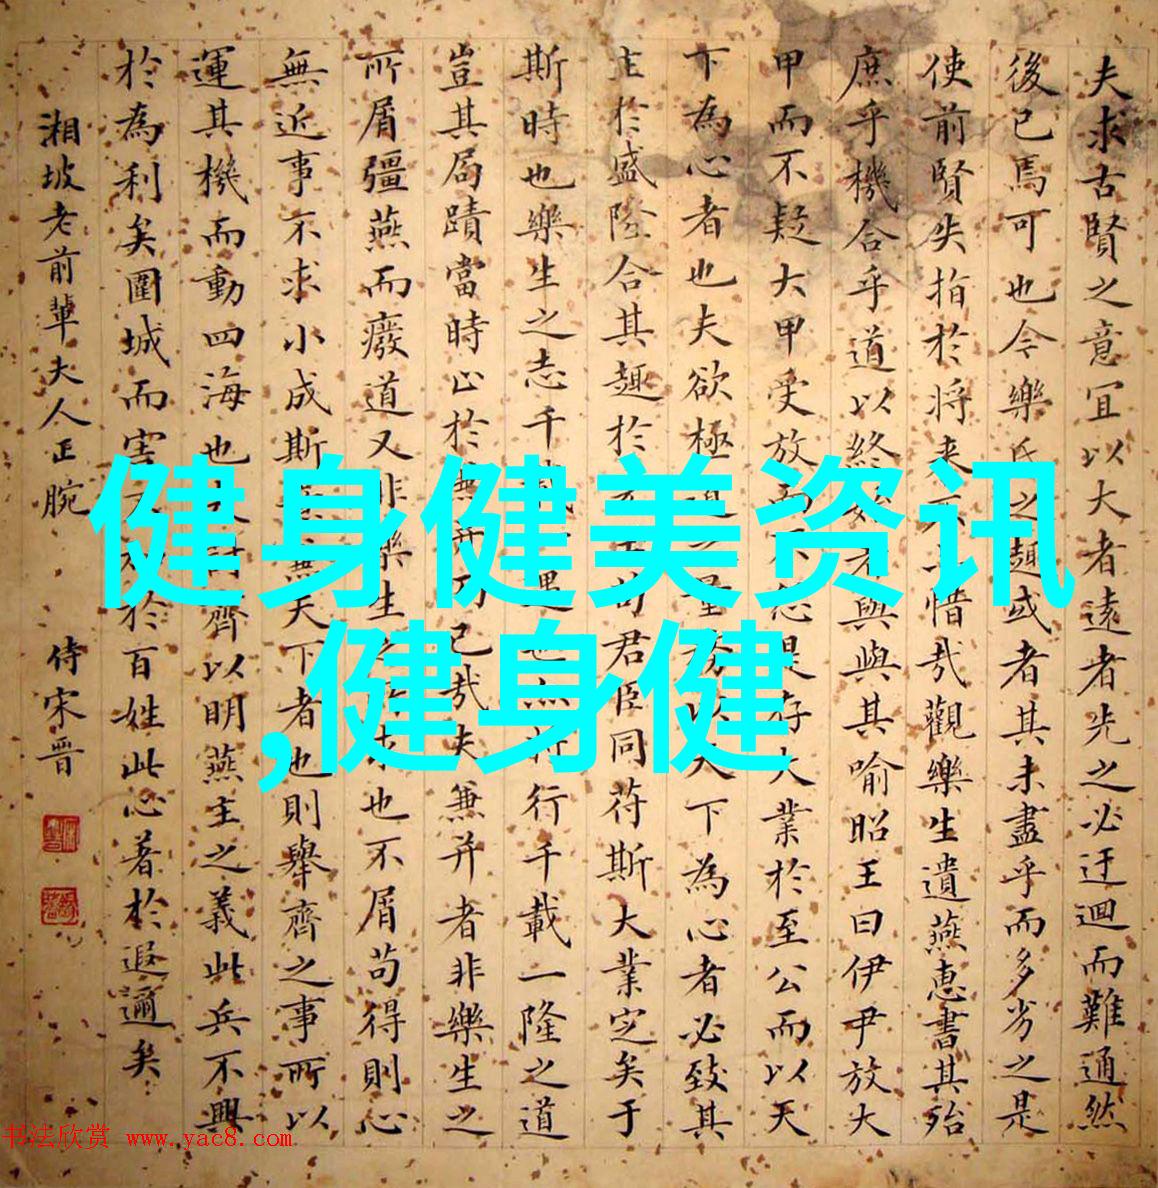 夫求古賢之意宜以大者遠者先之必迂迴而難通然
後已焉可也今樂氏之趣或者其未盡乎而多劣之是
使前賢失指於將來不惜哉觀樂生遺燕惠書其殆
庶乎機合乎道以終始者與與其喻昭王曰伊尹放大
甲而不疑大甲受放而不怨是存大業於至公而以天
下為心者也夫欲極道之量務以天下為心者必致其
主於盛隆合其趣於先王苟君臣同苻斯大業定矣于
斯時也樂生之志千載一遇也亦將行千載一隆之道
豈其局蹟當時止於兼并而已哉夫兼并者非樂生之
所屑彊燕而廢道又非樂生之所求也不屑苟得則心
無近事不求小成斯意兼天下者也則舉齊之事所以
運其機而動四海也夫討齊以明燕主之義此兵不興
於為利矣圍城而害不加於百姓此心著於遐邇矣
湘坡老前輩夫人正腕 侍宋晋
健身健美资讯
,健身健
书法欣赏 www.yac8.com